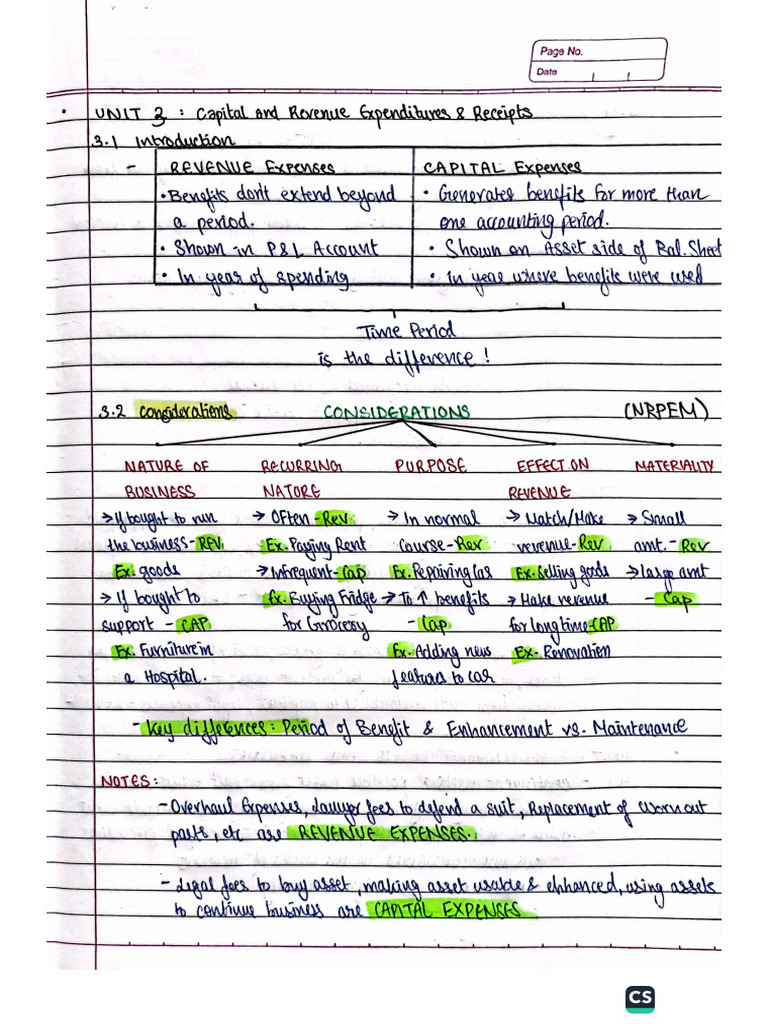 Page No.
Date
UNIT 3 : Capital and Revenue Expenditures & Receipts
3.1 Introduction
- REVENUE Expenses
• Benefits don't extend beyond
a period.
• Shown in P&L Account
• In year of spending
CAPITAL Expenses
• Generates benefits for more than
one accounting period.
• Shown on Asset side of Bal. Sheet
• In year where benefits were used
Time Period
is the difference!
3.2 Considerations CONSIDERATIONS (NRPEM)
NATURE OF
BUSINESS
→ If bought to run
the business - REV.
Ex. goods
→ If bought to
support - CAP
Ex. Furniture in
a Hospital.
RECURRING
NATURE
→ Often - Rev
Ex. Paying Rent
→ Infrequent - Cap
Ex. Buying Fridge
for Grocery
PURPOSE
→ In normal
course - Rev
Ex. Repairing Car
→ To ↑ benefits
- Cap
Ex. Adding new
features to car
EFFECT ON
REVENUE
→ Match/Make
revenue - Rev
Ex. Selling goods
→ Make revenue
for long time - CAP
Ex. Renovation
MATERIALITY
→ Small
amt. - Rev
→ large amt
- Cap
- Key differences: Period of Benefit & Enhancement vs. Maintenance
NOTES:
- Overhaul Expenses, Lawyer fees to defend a suit, Replacement of worn out
parts, etc are REVENUE EXPENSES.
- Legal fees to buy asset, making asset usable & enhanced, using assets
to continue business are CAPITAL EXPENSES
CS